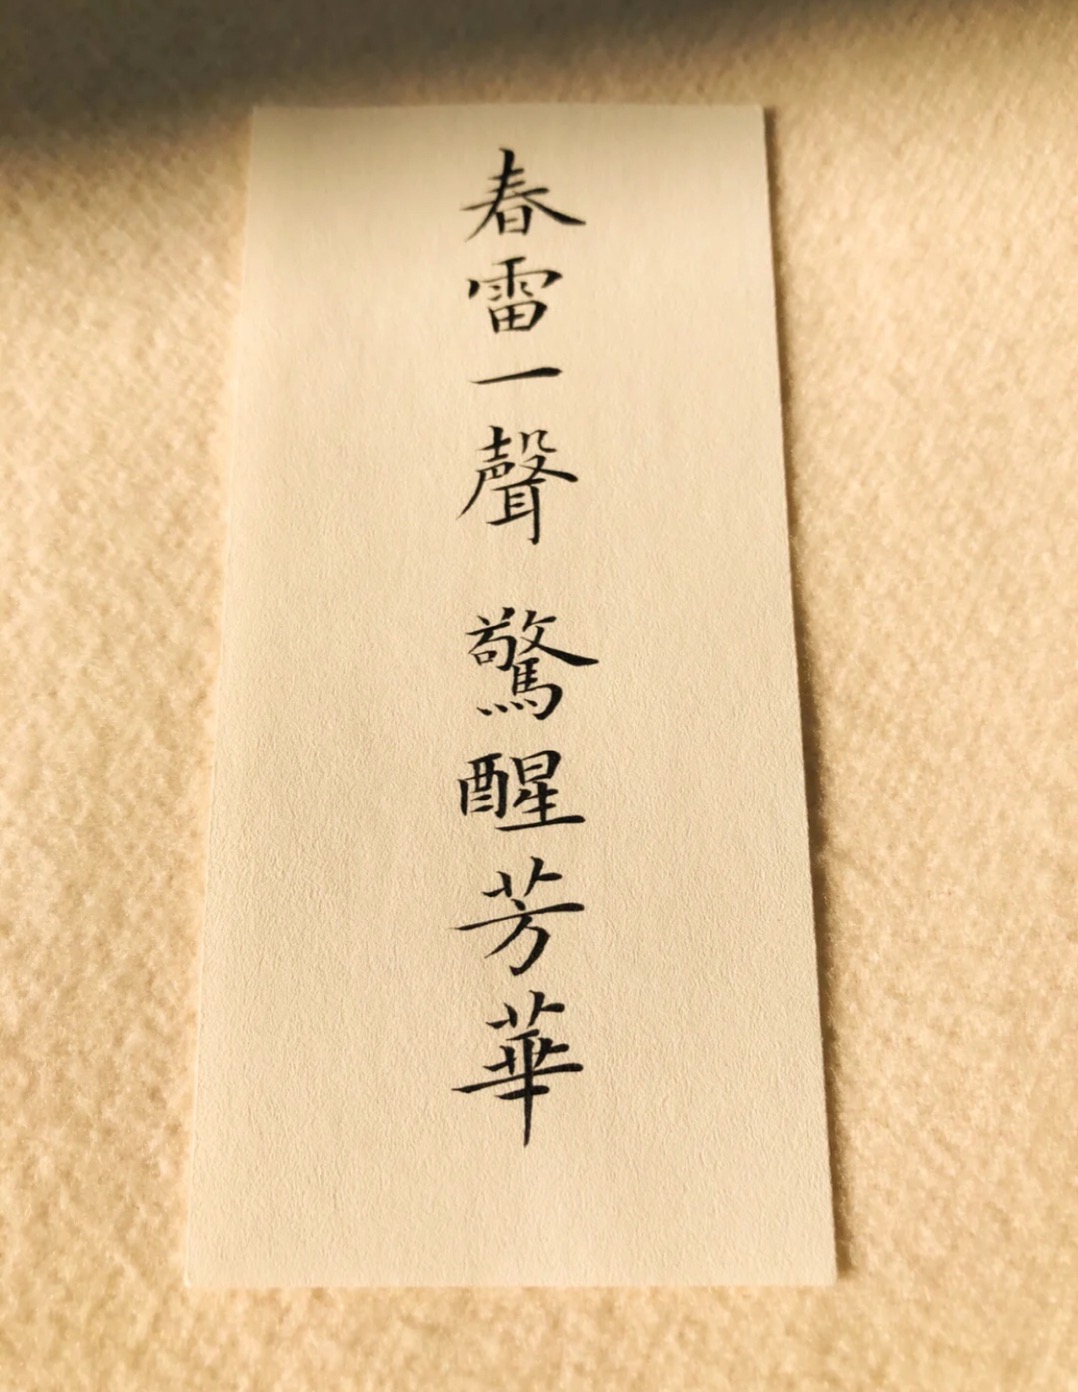 春雷一聲 驚醒芳華